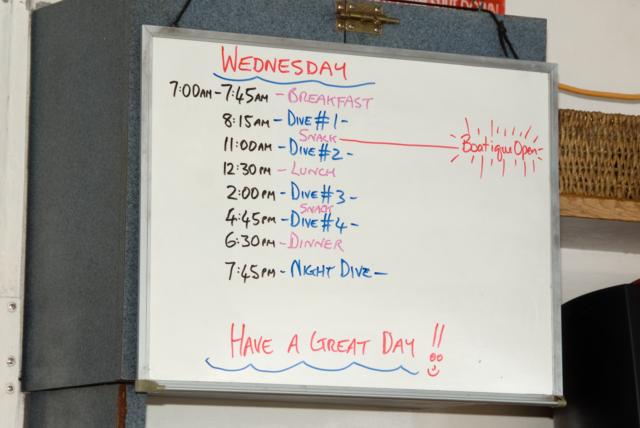 WEDNESDAY
7:00AM-7:45AM - BREAKFAST
8:15AM - DIVE #1 -
SNACK
11:00AM - DIVE #2 -
Boatique Open
12:30PM - LUNCH
2:00PM - DIVE #3 -
SNACK
4:45PM - DIVE #4 -
6:30PM - DINNER
7:45PM - NIGHT DIVE -
HAVE A GREAT DAY !!